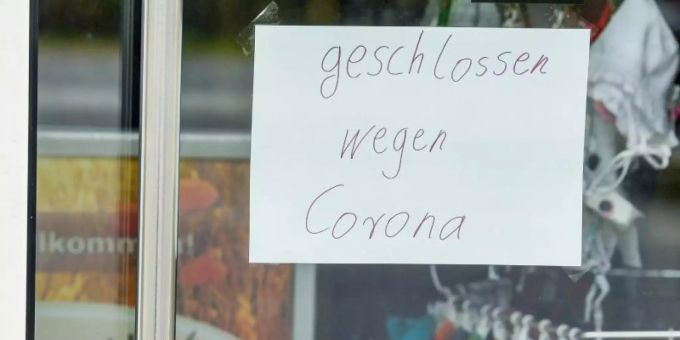 geschlossen
wegen
Corona
lkomm